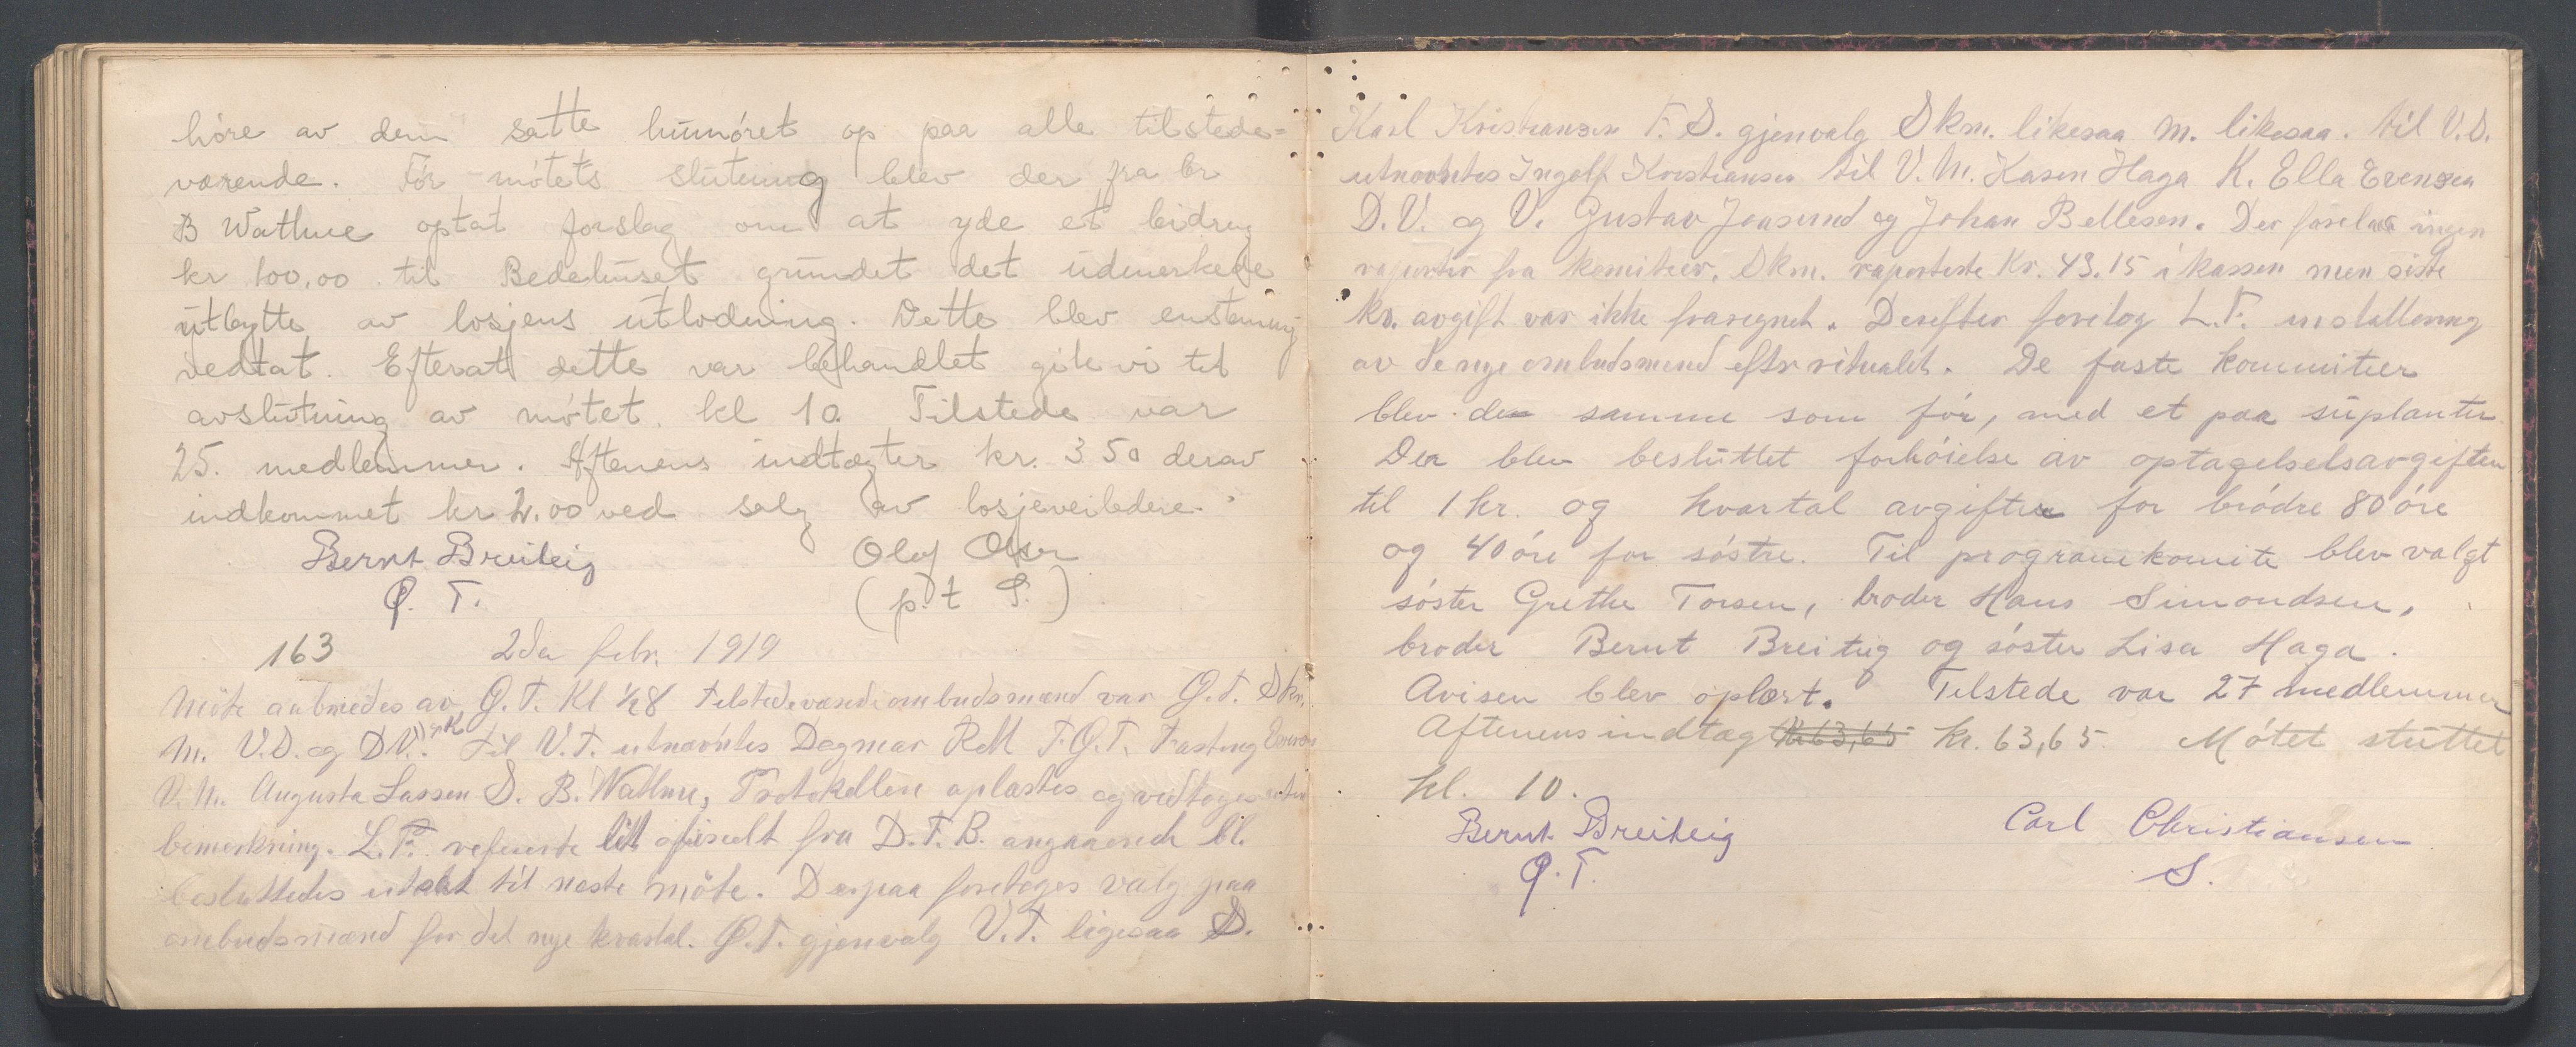 höre av dem satte humöret op paa alle tilstede=
værende. För mötets slutning blev der fra br
B Wathne optat forslag om at yde et bidrag
kr 100,00 til Bedehuset grundet det udmerkede
utbytte av losjens utlodning. Dette blev enstemmig
vedtat. Efterat dette var behandlet gik vi til
avslutning av mötet kl 10. Tilstede var
25. medlemmer. Aftenens indtægter kr. 3 50 derav
indkommet kr 2.00 ved salg av losjeveiledere.
Bernt Breiteig Olaf
O. T. (p.t S.)
163 2den febr. 1919
Möte aabnedes av O.T. Kl ½8 tilstedeværende ombudsmænd var O.T. Skm.
M. V.S. og D.V. og K. Til V.T. utnævntes Dagmar F.O.T.
V.M. Augusta Lassen S. B. Wathne, Protokollen oplæstes og vedtoges uten
bemerkning. L.T. refererte litt ofisielt fra D.T.B. angaaende bl.
besluttedes utsat til næste möte. Derpaa foretoges valg paa
ombudsmænd for det nye kvartal. O.T. gjenvalg V.T. ligesaa S.
Karl Kristiansen F.S. gjenvalg Skm. likesaa M. likesaa. til V.S.
utnævntes Ingolf Kristiansen til V.M. Karen Haga K. Ella Evensen
D.V. og V. Gustav Jonsund og Johan Bellesen. Der forelaa ingen
raporter fra komiteer. Skm. raporterte Kr. 43.15 i kassen men siste
kv. avgift var ikke fraregnet. Derefter foretog L.T. installering
av de nye ombudsmend eftr ritualet. De faste kommiteer
blev de samme som för, med et paa suplanter.
Der blev besluttet forhöielse av optagelselsavgiften
til 1 kr. og kvartal avgiften for brödre 80 öre
og 40 öre for söstre. Til programkomite blev valgt
söster Grethe Torsen, broder Hans Simondsen,
broder Bernt Breiteig og söster Lisa Haga.
Avisen blev oplæst. Tilstede var 27 medlemmer
Aftenens indtæg kr 63,65 kr. 63,65. Mötet sluttet
kl. 10.
Bernt Breiteig Carl Christiansen
O.T. S.